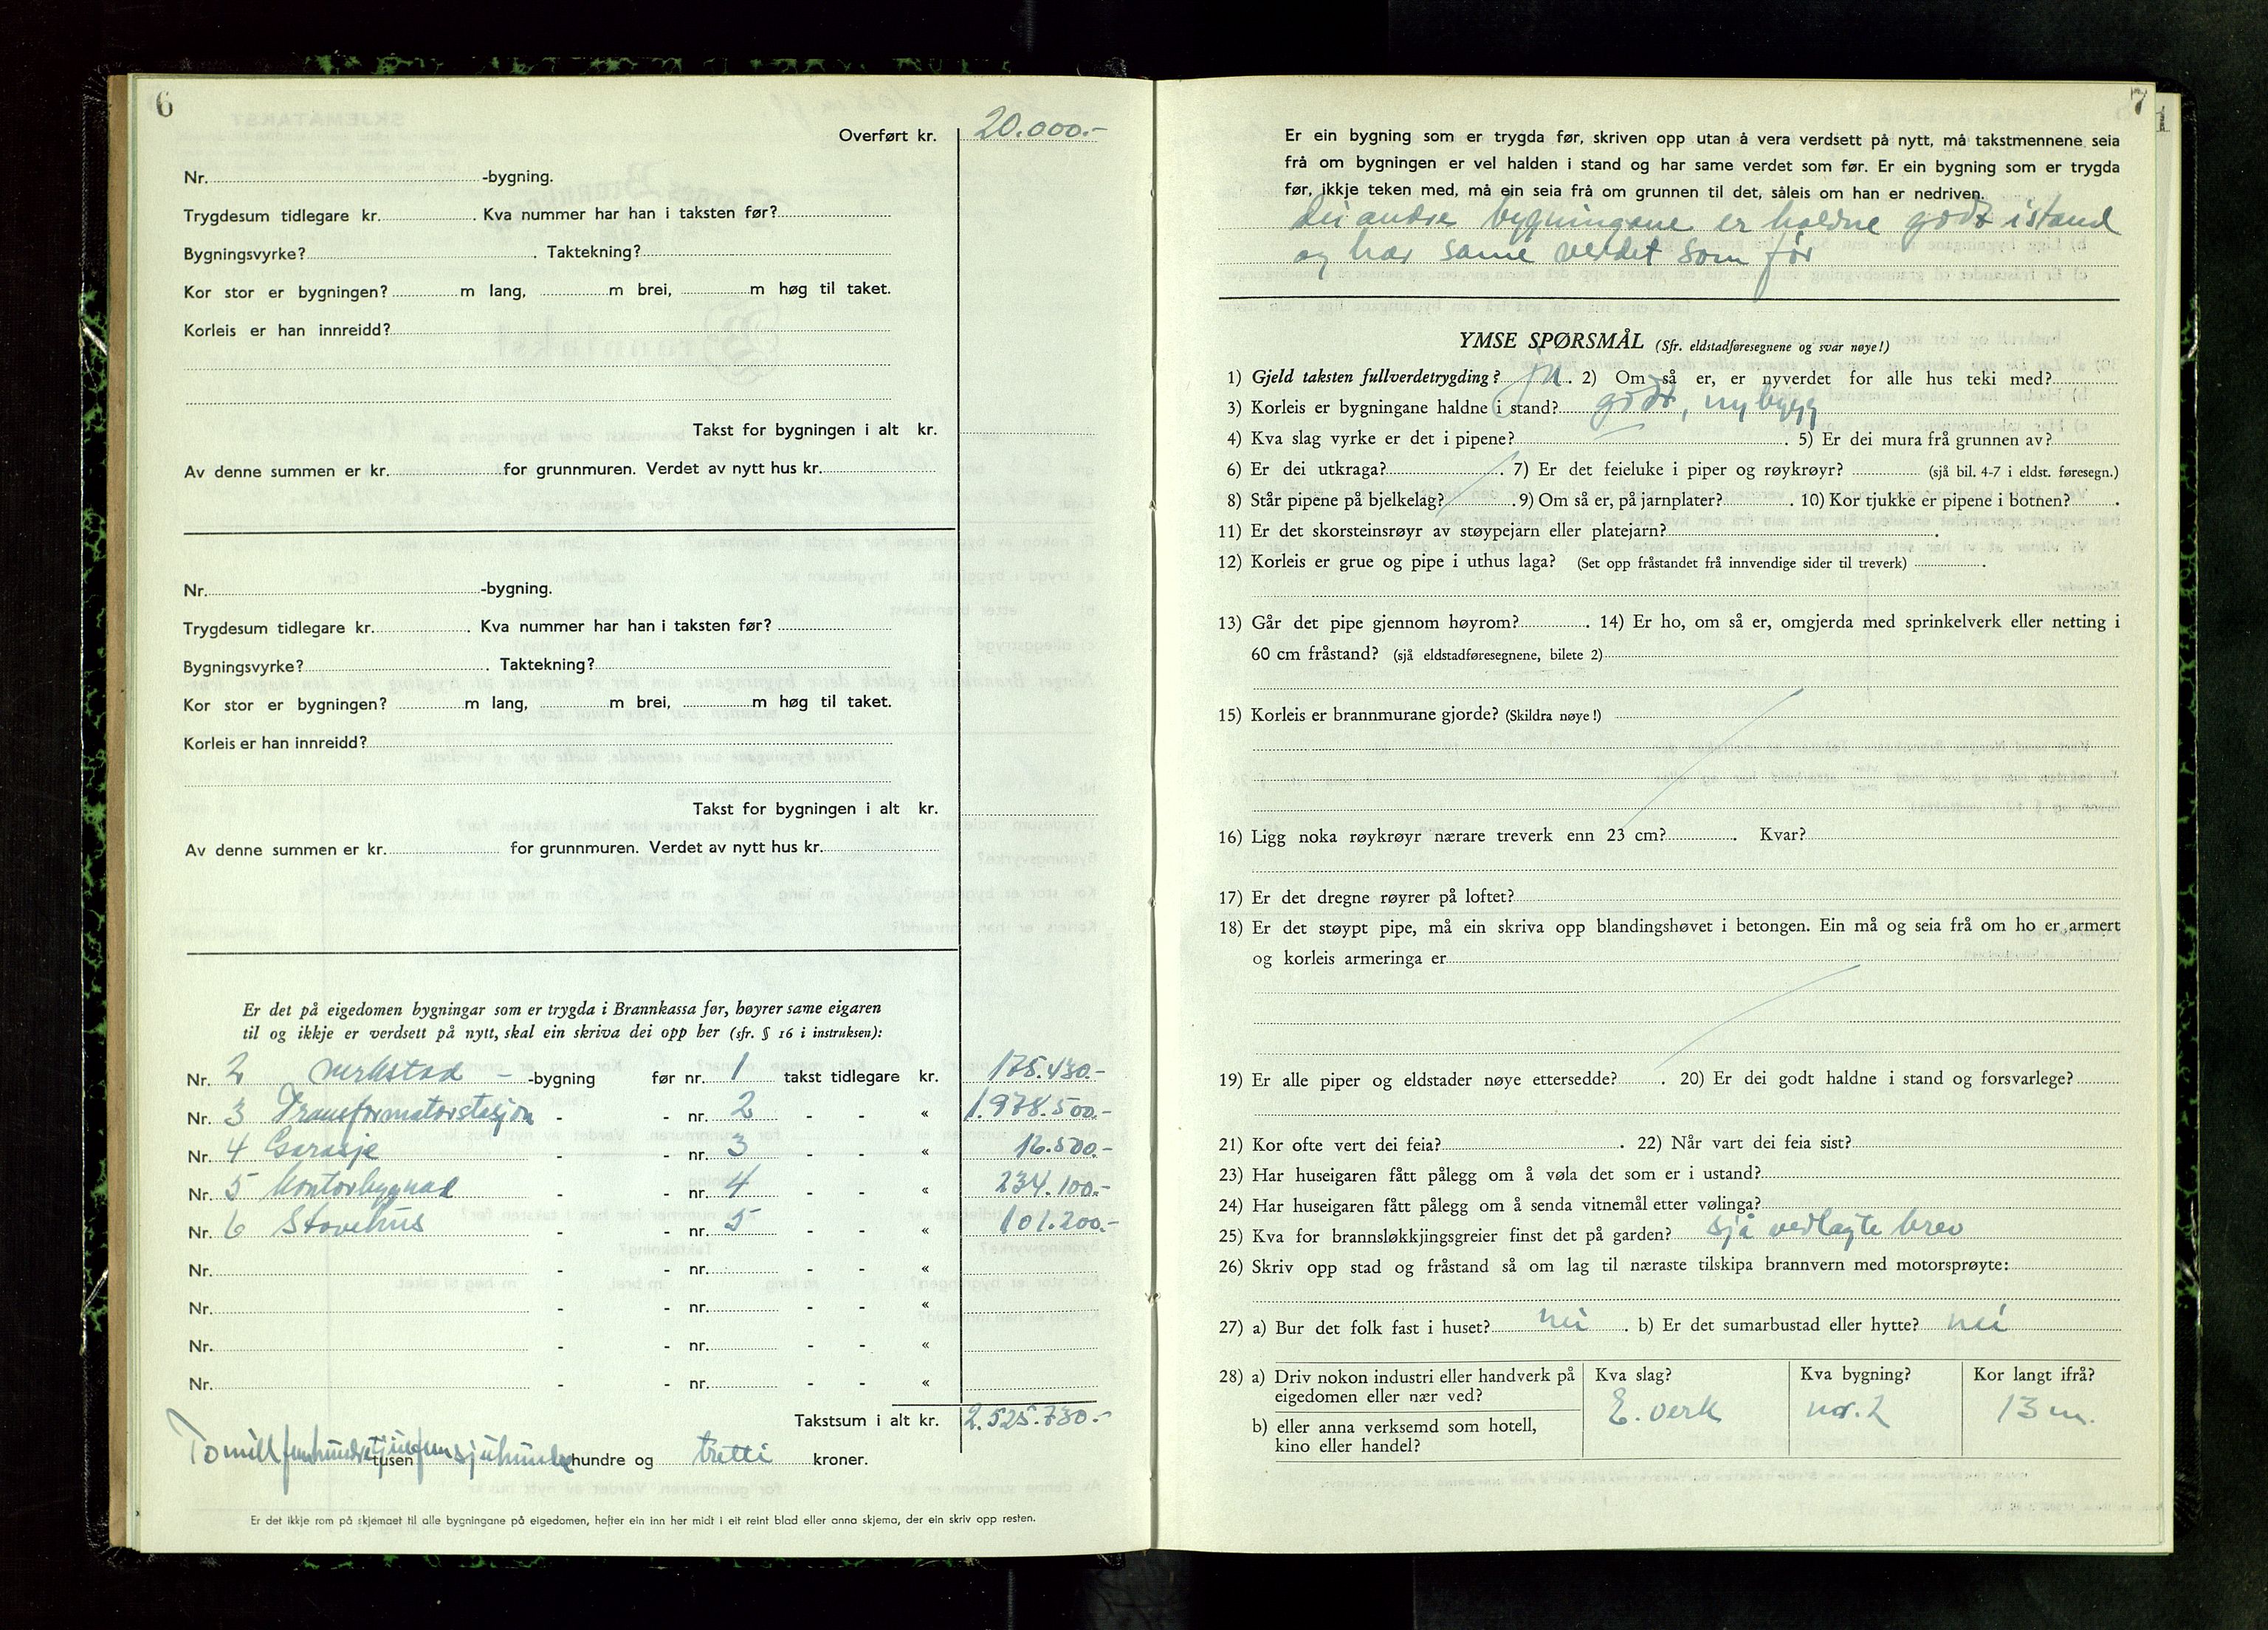 6
Overført kr. 20.000.-
Nr. -bygning.
Trygdesum tidlegare kr. . Kva nummer har han i taksten før?
Bygningsvyrke? . Taktekning?
Kor stor er bygningen? m lang, m brei, m høg til taket.
Korleis er han innreidd?
Takst for bygningen i alt kr.
Av denne summen er kr. for grunnmuren. Verdet av nytt hus kr.
Nr. -bygning.
Trygdesum tidlegare kr. . Kva nummer har han i taksten før?
Bygningsvyrke? . Taktekning?
Kor stor er bygningen? m lang, m brei, m høg til taket.
Korleis er han innreidd?
Takst for bygningen i alt kr.
Av denne summen er kr. for grunnmuren. Verdet av nytt hus kr.
Er det på eigedomen bygningar som er trygda i Brannkassa før, høyrer same eigaren
til og ikkje er verdsett på nytt, skal ein skriva dei opp her (sfr. § 16 i instruksen):
Nr. 2 Verkstad - -bygning før nr. 1 takst tidlegare kr. 175.430.-
Nr. 3 Transformatorstasjon - - nr. 2 - - « 1.978.500.-
Nr. 4 Garasje - - nr. 3 - - « 16.500.-
Nr. 5 Kontorbygnad - - nr. 4 - - « 234.100.-
Nr. 6 Stovehus - - nr. 5 - - « 101.200.-
Nr. - - nr. - - «
Nr. - - nr. - - «
Nr. - - nr. - - «
Nr. - - nr. - - «
Takstsum i alt kr. 2.525.730.-
To mill femhundretjuefem tusen sjuhundre hundre og tretti kroner.
Er det ikkje rom på skjemaet til alle bygningane på eigedomen, hefter ein inn her midt i eit reint blad eller anna skjema, der ein skriv opp resten.
7
1
Er ein bygning som er trygda før, skriven opp utan å vera verdsett på nytt, må takstmennene seia
frå om bygningen er vel halden i stand og har same verdet som før. Er ein bygning som er trygda
før, ikkje teken med, må ein seia frå om grunnen til det, såleis om han er nedriven.
Dei andre bygningane er haldne godt istand
og har same verdet som før
YMSE SPØRSMÅL (Sfr. eldstadføresegnene og svar nøye!)
1) Gjeld taksten fullverdetrygding? ja. 2) Om så er, er nyverdet for alle hus teki med?
3) Korleis er bygningane haldne i stand? godt, nybygg
4) Kva slag vyrke er det i pipene? . 5) Er dei mura frå grunnen av?
6) Er dei utkraga? . 7) Er det feieluke i piper og røykrøyr? (sjå bil. 4-7 i eldst. føresegn.)
8) Står pipene på bjelkelag? . 9) Om så er, på jarnplater? . 10) Kor tjukke er pipene i botnen? .
11) Er det skorsteinsrøyr av støypejarn eller platejarn? .
12) Korleis er grue og pipe i uthus laga? (Set opp fråstandet frå innvendige sider til treverk) .
13) Går det pipe gjennom høyrom? . 14) Er ho, om så er, omgjerda med sprinkelverk eller netting i
60 cm fråstand? (sjå eldstadføresegnene, bilete 2)
15) Korleis er brannmurane gjorde? (Skildra nøye!)
16) Ligg noka røykrøyr nærare treverk enn 23 cm? . Kvar?
17) Er det dregne røyrer på loftet?
18) Er det støypt pipe, må ein skriva opp blandingshøvet i betongen. Ein må og seia frå om ho er armert
og korleis armeringa er
19) Er alle piper og eldstader nøye ettersedde? . 20) Er dei godt haldne i stand og forsvarlege?
21) Kor ofte vert dei feia? . 22) Når vart dei feia sist?
23) Har huseigaren fått pålegg om å vøla det som er i ustand?
24) Har huseigaren fått pålegg om å senda vitnemål etter vølinga?
25) Kva for brannsløkkjingsgreier finst det på garden? sjå vedlagte brev
26) Skriv opp stad og fråstand så om lag til næraste tilskipa brannvern med motorsprøyte:
27) a) Bur det folk fast i huset? nei . b) Er det sumarbustad eller hytte? nei
28) a) Driv nokon industri eller handverk på eigedomen eller nær ved? Kva slag? Kva bygning? Kor langt ifrå?
b) eller anna verksemd som hotell, kino eller handel? E. verk nr. 2 13 m.